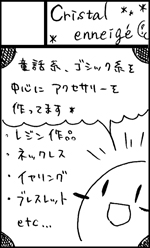 Cristal
enneigé
童話系、ゴシック系を
中心にアクセサリーを
作ってます*
・レジン作品
・ネックレス
・イヤリング
・ブレスレット
etc...